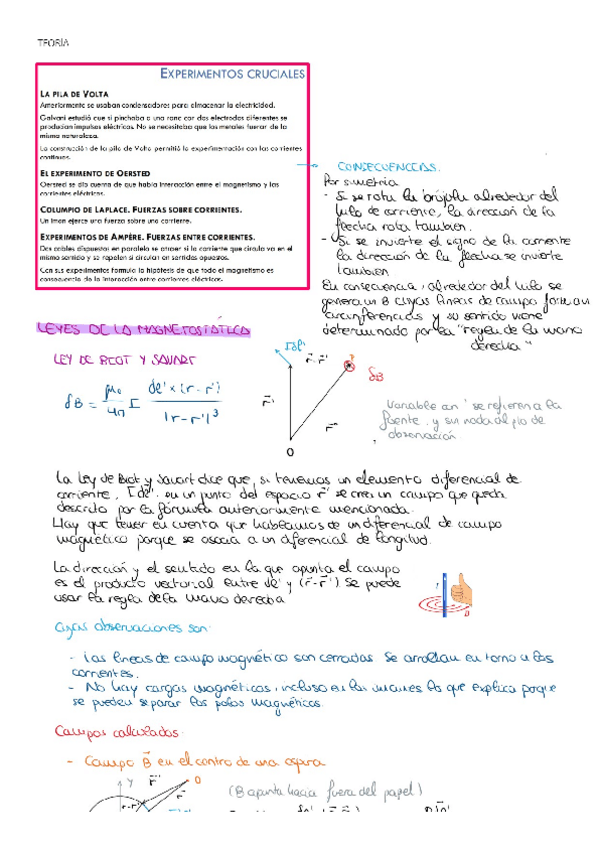 TEORÍA
EXPERIMENTOS CRUCIALES
LA PILA DE VOLTA
Anteriormente se usaban condensadores para almacenar la electricidad.
Galvani estudió que si pinchaba a una rana con dos electrodos diferentes se
producían impulsos eléctricos. No se necesitaba que los metales fueran de la
misma naturaleza.
La construcción de la pila de Volta permitió la experimentación con las corrientes
continuas.
EL EXPERIMENTO DE OERSTED
Oersted se dio cuenta de que había interacción entre el magnetismo y las
corrientes eléctricas.
COLUMPIO DE LAPLACE. FUERZAS SOBRE CORRIENTES.
Un imán ejerce una fuerza sobre una corriente.
EXPERIMENTOS DE AMPÈRE. FUERZAS ENTRE CORRIENTES.
Dos cables dispuestos en paralelo se atraen si la corriente que circula va en el
mismo sentido y se repelen si circulan en sentidos opuestos.
Con sus experimentos formula la hipótesis de que todo el magnetismo es
consecuencia de la interacción entre corrientes eléctricas.
CONSECUENCIAS.
Por simetría
- Si se rota la brújula alrededor del
hilo de corriente, la dirección de la
flecha rota también.
- Si se invierte el signo de la corriente
la dirección de la flecha se invierte
también
En consecuencia, alrededor del hilo se
genera un B cuyas líneas de campo forman
circunferencias y su sentido viene
determinado por la "regla de la mano
derecha"
LEYES DE LA MAGNETOSTÁTICA
LEY DE BIOT Y SAVART
δB = μ₀/4π I dl' × (r - r') / |r - r'|³
Idl'
r-r'
δB
r'
r
O
Variable con ' se refieren a la
fuente y sin nada al pto de
observación
La ley de Biot y Savart dice que, si tenemos un elemento diferencial de
corriente, Idl', en un punto del espacio r' se crea un campo que queda
descrito por la fórmula anteriormente mencionada.
Hay que tener en cuenta que hablamos de un diferencial de campo
magnético porque se asocia a un diferencial de longitud.
La dirección y el sentido en la que apunta el campo
es el producto vectorial entre dl' y (r-r') Se puede
usar la regla de la mano derecha
I
B
observaciones son:
- Las líneas de campo magnético son cerradas Se arrollan en torno a las
corrientes.
- No hay cargas magnéticas, incluso en los imanes lo que explica porque
se pueden separar los polos magnéticos.
Campos calculados:
- Campo B en el centro de una espira
y
r'
O
r
r-r'
(B apunta hacia fuera del papel)